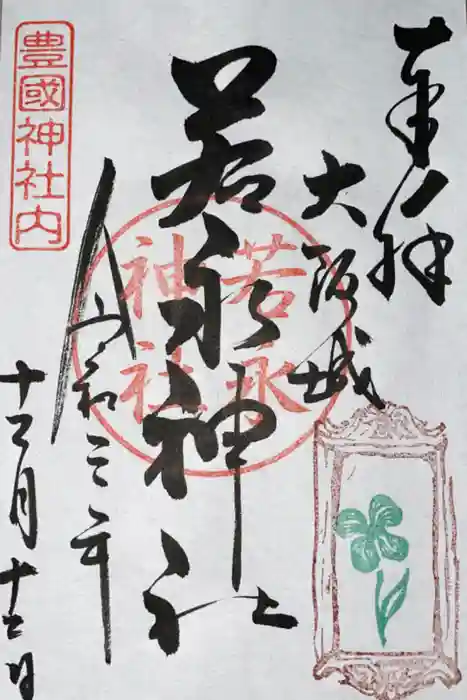 奉拝
大阪城
若永神社
若永
神社
豊國神社内
令和三年
十二月十二日